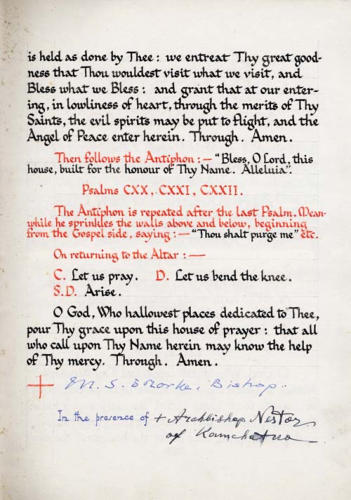 is held as done by Thee : we entreat Thy great good-
ness that Thou wouldest visit what we visit, and
Bless what we Bless : and grant that at our enter-
ing, in lowliness of heart, through the merits of Thy
Saints, the evil spirits may be put to flight, and the
Angel of Peace enter herein. Through. Amen.
Then follows the Antiphon : — "Bless, O Lord, this
house, built for the honour of Thy Name. Alleluia".
Psalms CXX, CXXI, CXXII.
The Antiphon is repeated after the last Psalm. Mean-
while he sprinkles the walls above and below, beginning
from the Gospel side, saying : — "Thou shalt purge me" etc.
On returning to the Altar : —
C. Let us pray. D. Let us bend the knee.
S.D. Arise.
O God, Who hallowest places dedicated to Thee,
pour Thy grace upon this house of prayer : that all
who call upon Thy Name herein may know the help
of Thy mercy. Through. Amen.
M. S. O'Rorke, Bishop.
In the presence of + Archbishop Nestor
of Kamchatka